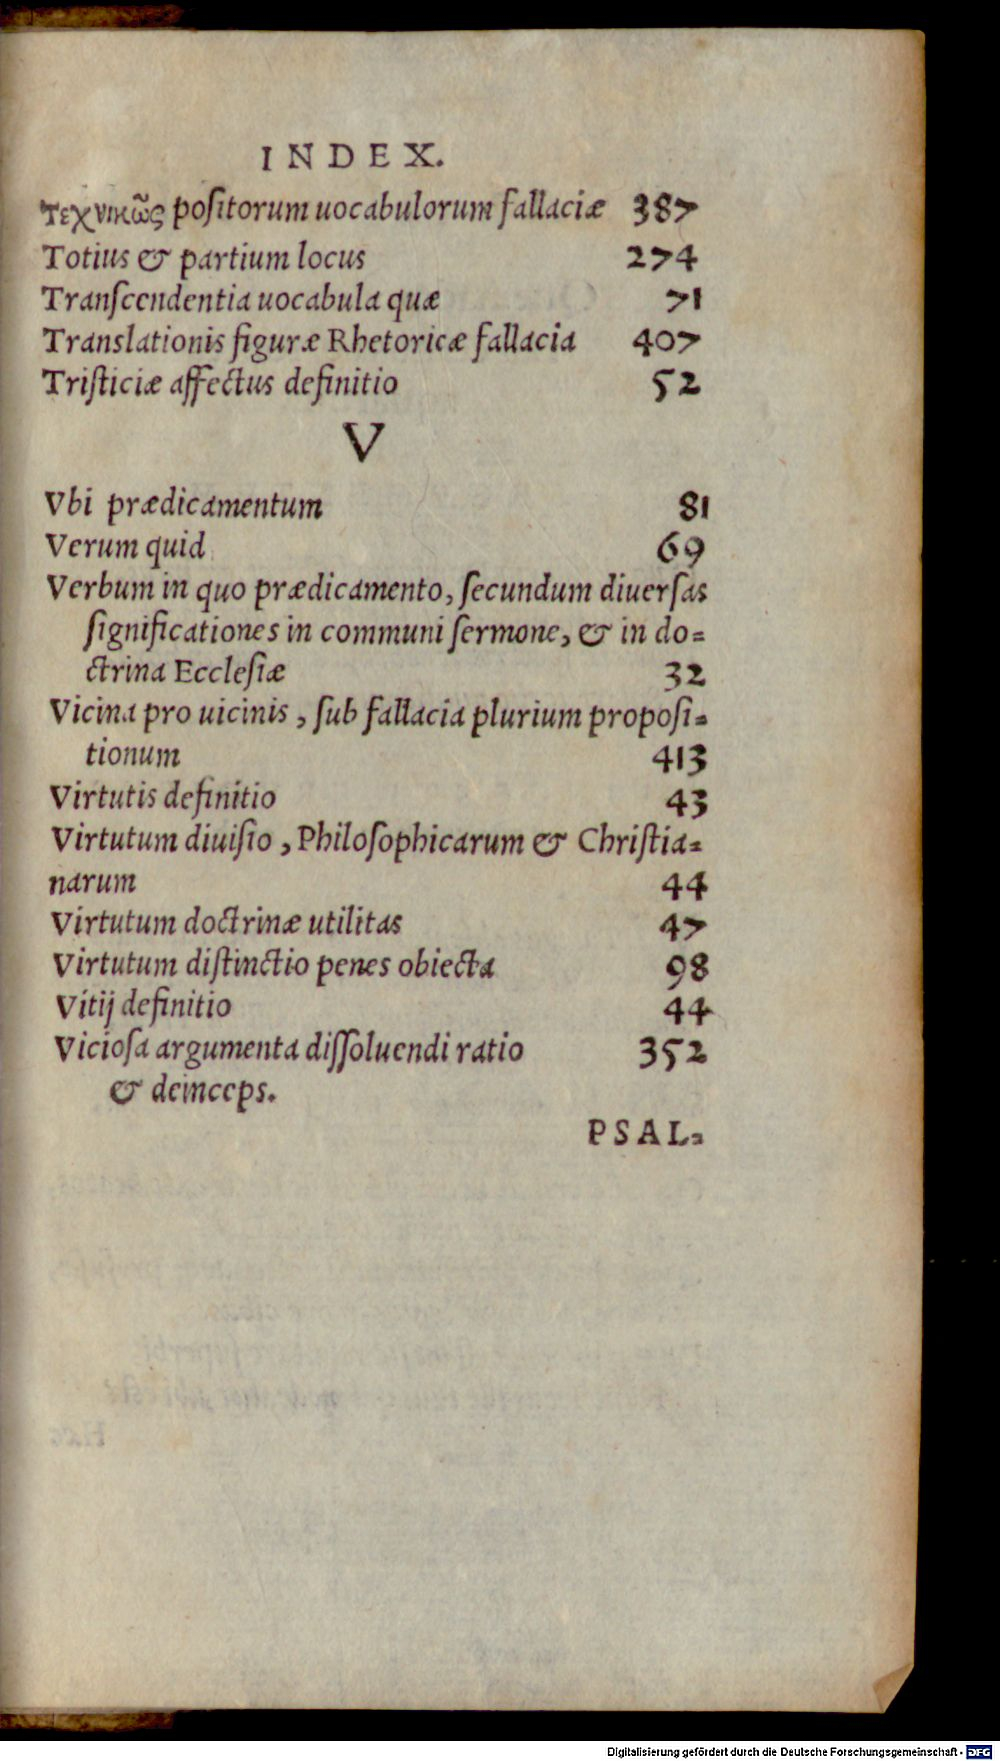 INDEX.
Τεχνικῶς positorum uocabulorum fallaciæ 387
Totius & partium locus 274
Transcendentia uocabula quæ 71
Translationis figuræ Rhetoricæ fallacia 407
Tristiciæ affectus definitio 52
V
Vbi prædicamentum 81
Verum quid 69
Verbum in quo prædicamento, secundum diuersas
significationes in communi sermone, & in do=
ctrina Ecclesiæ 32
Vicina pro uicinis, sub fallacia plurium proposi=
tionum 413
Virtutis definitio 43
Virtutum diuisio, Philosophicarum & Christia=
narum 44
Virtutum doctrinæ utilitas 47
Virtutum distinctio penes obiecta 98
Vitij definitio 44
Viciosa argumenta dissoluendi ratio 352
& deinceps.
PSAL=
Digitalisierung gefördert durch die Deutsche Forschungsgemeinschaft - DFG